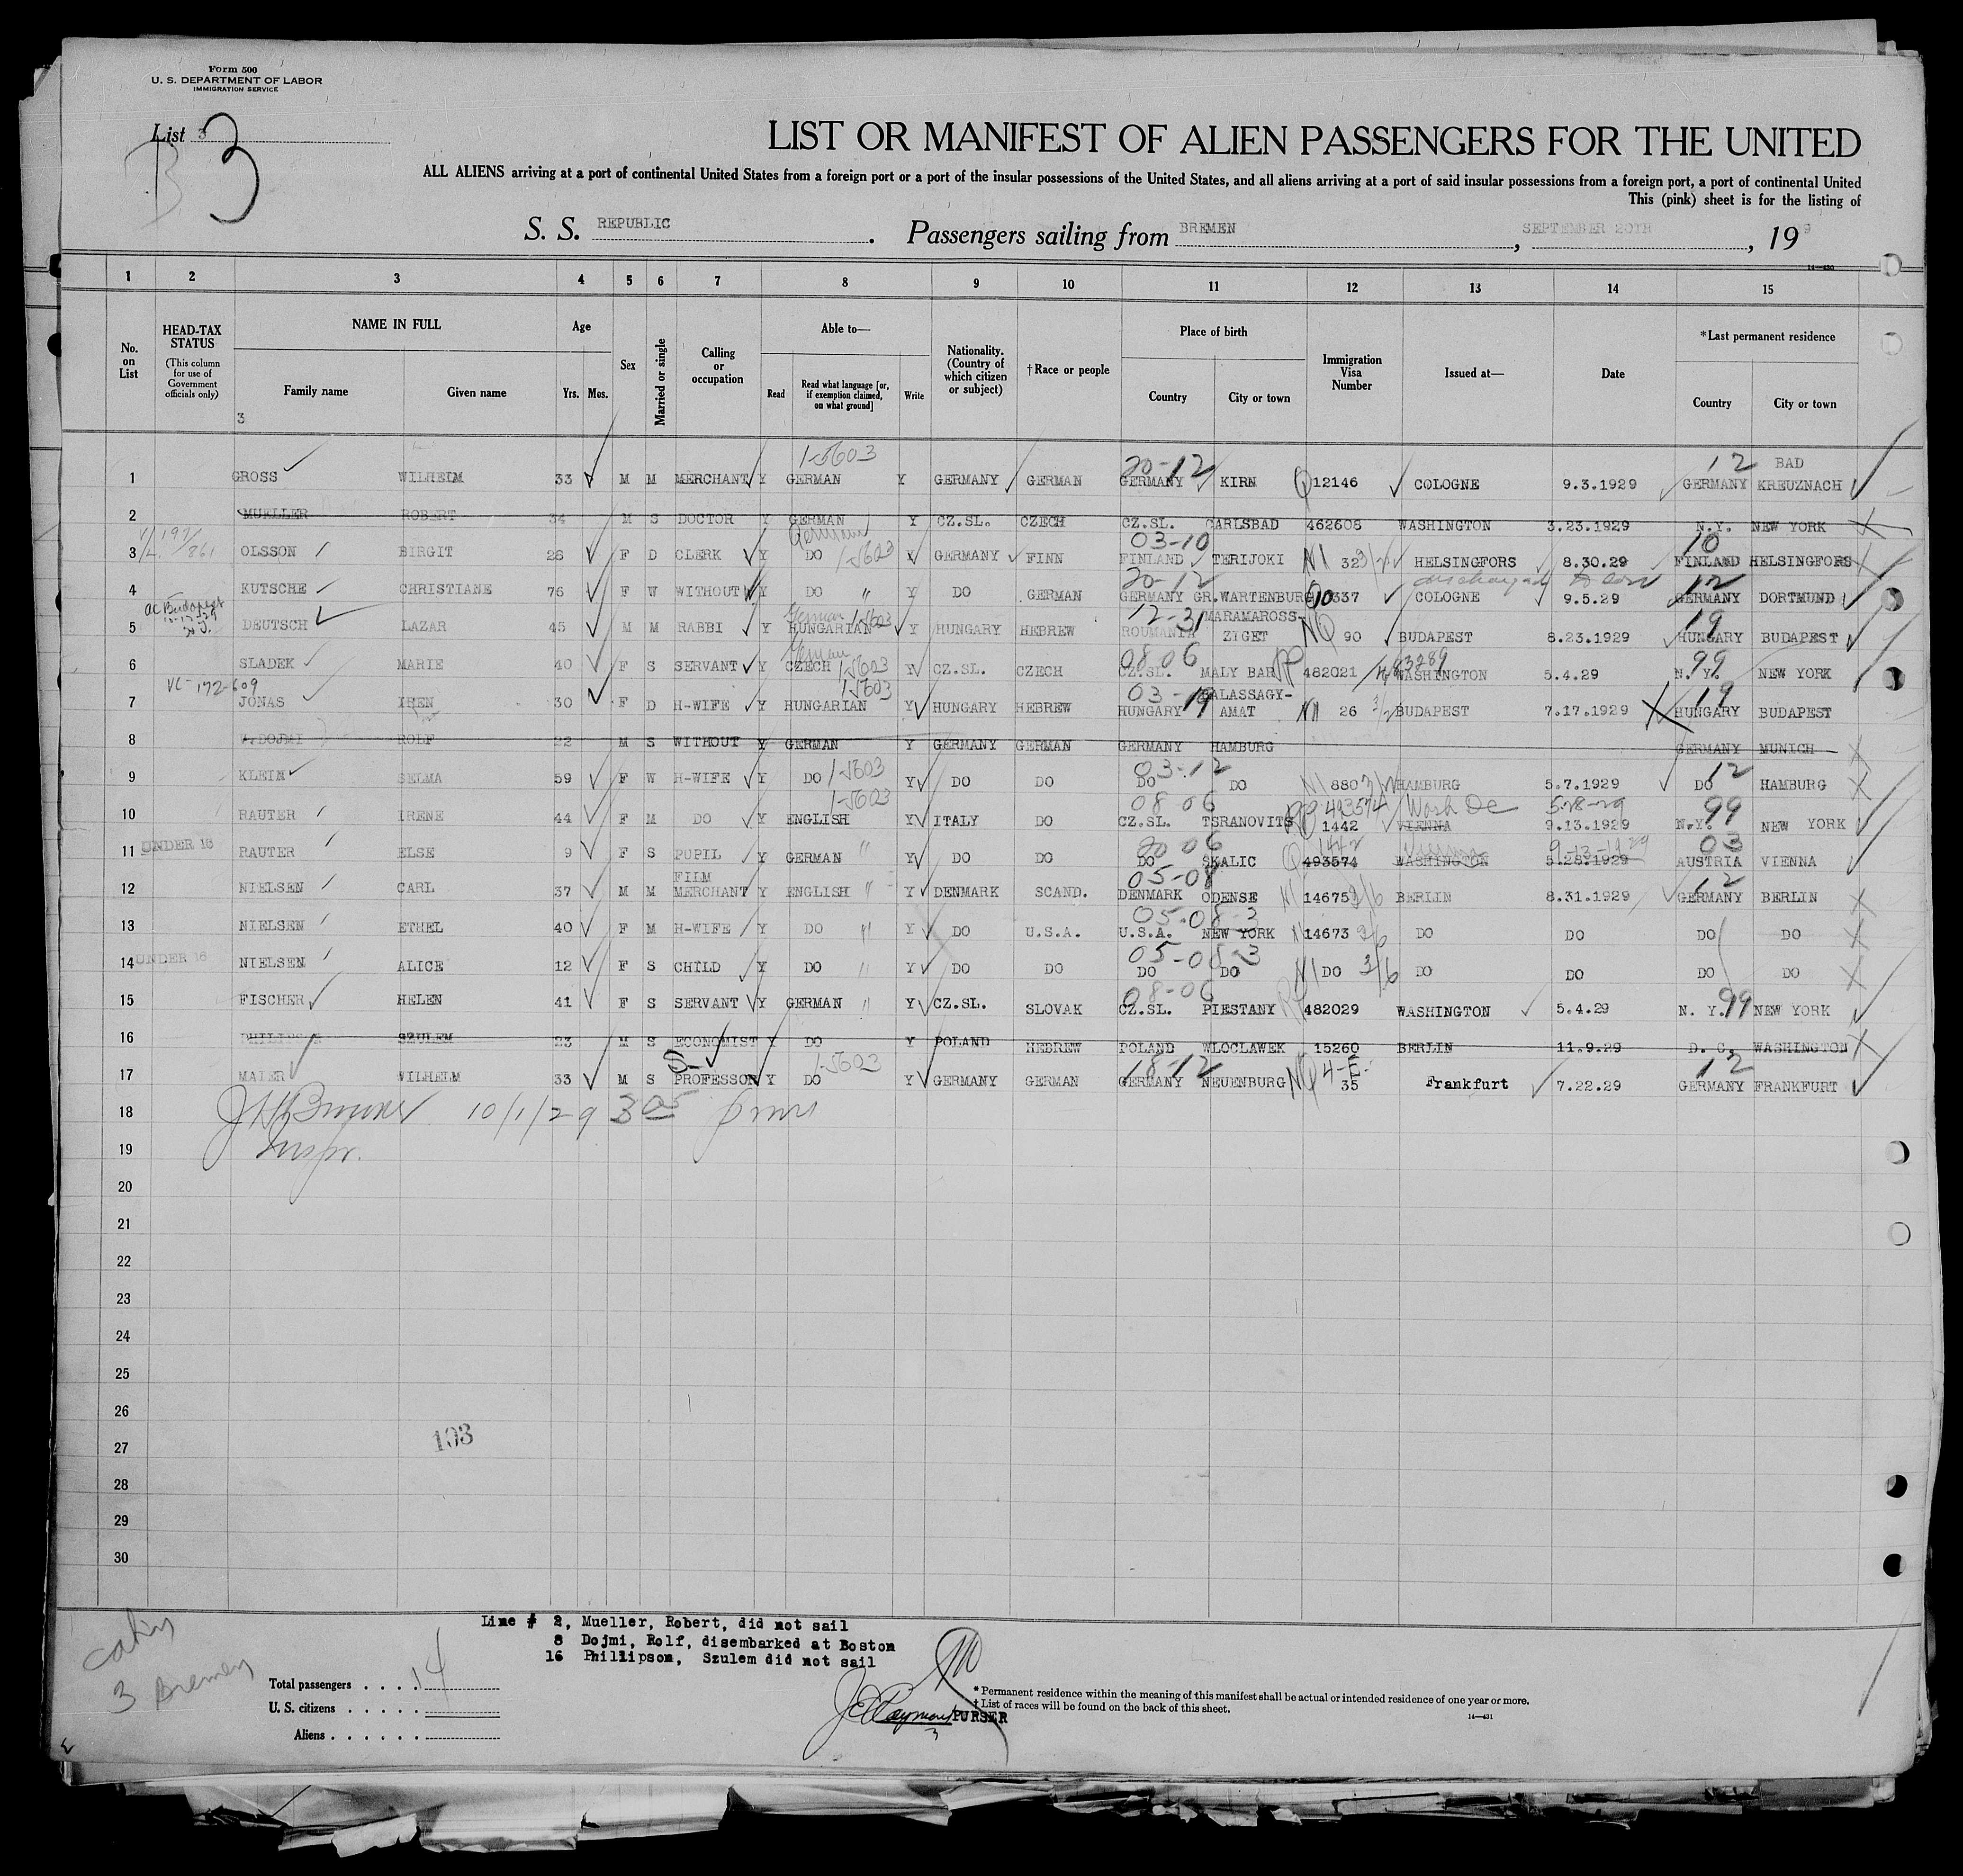 Form 500
U. S. DEPARTMENT OF LABOR
IMMIGRATION SERVICE
List 3
B 3
LIST OR MANIFEST OF ALIEN PASSENGERS FOR THE UNITED
ALL ALIENS arriving at a port of continental United States from a foreign port or a port of the insular possessions of the United States, and all aliens arriving at a port of said insular possessions from a foreign port, a port of continental United
This (pink) sheet is for the listing of
S. S. REPUBLIC. Passengers sailing from BREMEN, SEPTEMBER 20TH, 19 9
14—430
1 2 3 4 5 6 7 8 9 10 11 12 13 14 15
No. on List
HEAD-TAX STATUS (This column for use of Government officials only)
NAME IN FULL Family name Given name
Age Yrs. Mos.
Sex
Married or single
Calling or occupation
Able to— Read Read what language [or, if exemption claimed, on what ground] Write
Nationality. (Country of which citizen or subject)
†Race or people
Place of birth Country City or town
Immigration Visa Number
Issued at—
Date
*Last permanent residence Country City or town
3
1-5603 20-12 12 BAD
1 GROSS WILHELM 33 M M MERCHANT Y GERMAN Y GERMANY GERMAN GERMANY KIRN Q 12146 COLOGNE 9.3.1929 GERMANY KREUZNACH
2 MUELLER ROBERT 34 M S DOCTOR Y GERMAN Y CZ.SL. CZECH CZ.SL. CARLSBAD 462608 WASHINGTON 3.23.1929 N.Y. NEW YORK
German 1-5603 03-10 10
3 OLSSON BIRGIT 28 F D CLERK Y DO Y GERMANY FINN FINLAND TERIJOKI 32 HELSINGFORS 8.30.29 FINLAND HELSINGFORS
20-12 12
4 KUTSCHE CHRISTIANE 76 F W WITHOUT Y DO " Y DO GERMAN GERMANY GR.WARTENBURG 337 COLOGNE 9.5.29 GERMANY DORTMUND
ac Budapest
German 1-5603 12-31 MARAMAROSS- 19
5 DEUTSCH LAZAR 45 M M RABBI Y HUNGARIAN Y HUNGARY HEBREW ROUMANIA ZIGET NQ 90 BUDAPEST 8.23.1929 HUNGARY BUDAPEST
German 1-5603 08 06 99
6 SLADEK MARIE 40 F S SERVANT Y CZECH Y CZ.SL. CZECH CZ.SL. MALY BAR RP 482021 WASHINGTON 5.4.29 N. Y. NEW YORK
VC-172-609 1-5603 03-19 BALASSAGY- 19
7 JONAS IREN 30 F D H-WIFE Y HUNGARIAN Y HUNGARY HEBREW HUNGARY AMAT 26 BUDAPEST 7.17.1929 HUNGARY BUDAPEST
8 V.DOJMI ROLF 22 M S WITHOUT Y GERMAN Y GERMANY GERMAN GERMANY HAMBURG GERMANY MUNICH
1-5603 03-12 12
9 KLEIN SELMA 59 F W H-WIFE Y DO Y DO DO DO DO 880 HAMBURG 5.7.1929 DO HAMBURG
1-5603 08 06 RP 493574 Wash DC 5-28-29 99
10 RAUTER IRENE 44 F M DO Y ENGLISH Y ITALY DO CZ.SL. TSRANOVITS 1442 VIENNA 9.13.1929 N.Y. NEW YORK
UNDER 16 20 06 1442 Vienna 9-13-1929 03
11 RAUTER ELSE 9 F S PUPIL Y GERMAN " Y DO DO DO SKALIC Q 493574 WASHINGTON 5.28.1929 AUSTRIA VIENNA
FILM 05-08 12
12 NIELSEN CARL 37 M M MERCHANT Y ENGLISH " Y DENMARK SCAND. DENMARK ODENSE 14675 3/6 BERLIN 8.31.1929 GERMANY BERLIN
05-08-3
13 NIELSEN ETHEL 40 F M H-WIFE Y DO " Y DO U.S.A. U.S.A. NEW YORK 14673 3/6 DO DO DO DO
UNDER 16 05-08-3
14 NIELSEN ALICE 12 F S CHILD Y DO " Y DO DO DO DO DO 3/6 DO DO DO DO
08-06 99
15 FISCHER HELEN 41 F S SERVANT Y GERMAN " Y CZ.SL. SLOVAK CZ.SL. PIESTANY RP 482029 WASHINGTON 5.4.29 N. Y. NEW YORK
16 PHILIPSON SZULEM 23 M S ECONOMIST Y DO Y POLAND HEBREW POLAND WLOCLAWEK 15260 BERLIN 11.9.29 D. C. WASHINGTON
1-5603 18-12 4-E 12
17 MAIER WILHELM 33 M S PROFESSOR Y DO Y GERMANY GERMAN GERMANY NEUENBURG NQ 35 Frankfurt 7.22.29 GERMANY FRANKFURT
18 10/1/29 305
19 Inspr.
20
21
22
23
24
25
26
27
28
29
30
103
Line # 2, Mueller, Robert, did not sail
8 Dojmi, Rolf, disembarked at Boston
16 Phillipson, Szulem did not sail
Cabin
3 Bremen
Total passengers . . . . 14
U. S. citizens . . . . .
Aliens . . . . . .
PURSER
3
*Permanent residence within the meaning of this manifest shall be actual or intended residence of one year or more.
†List of races will be found on the back of this sheet.
14—431